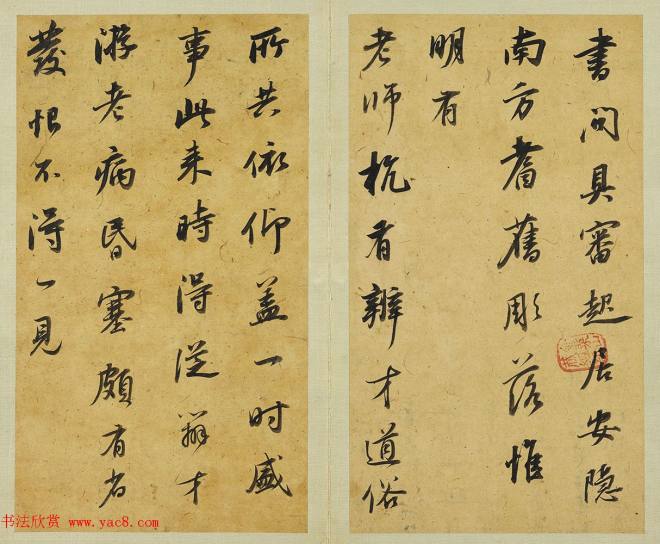 書問具審起居安隱
南方耆舊彫落惟
明有
老师杭有辯才道俗
所共依仰盖一时盛
事此来時得從辯才
游老病昏塞頗有省
發恨不得一見
书法欣赏 www.yac8.com